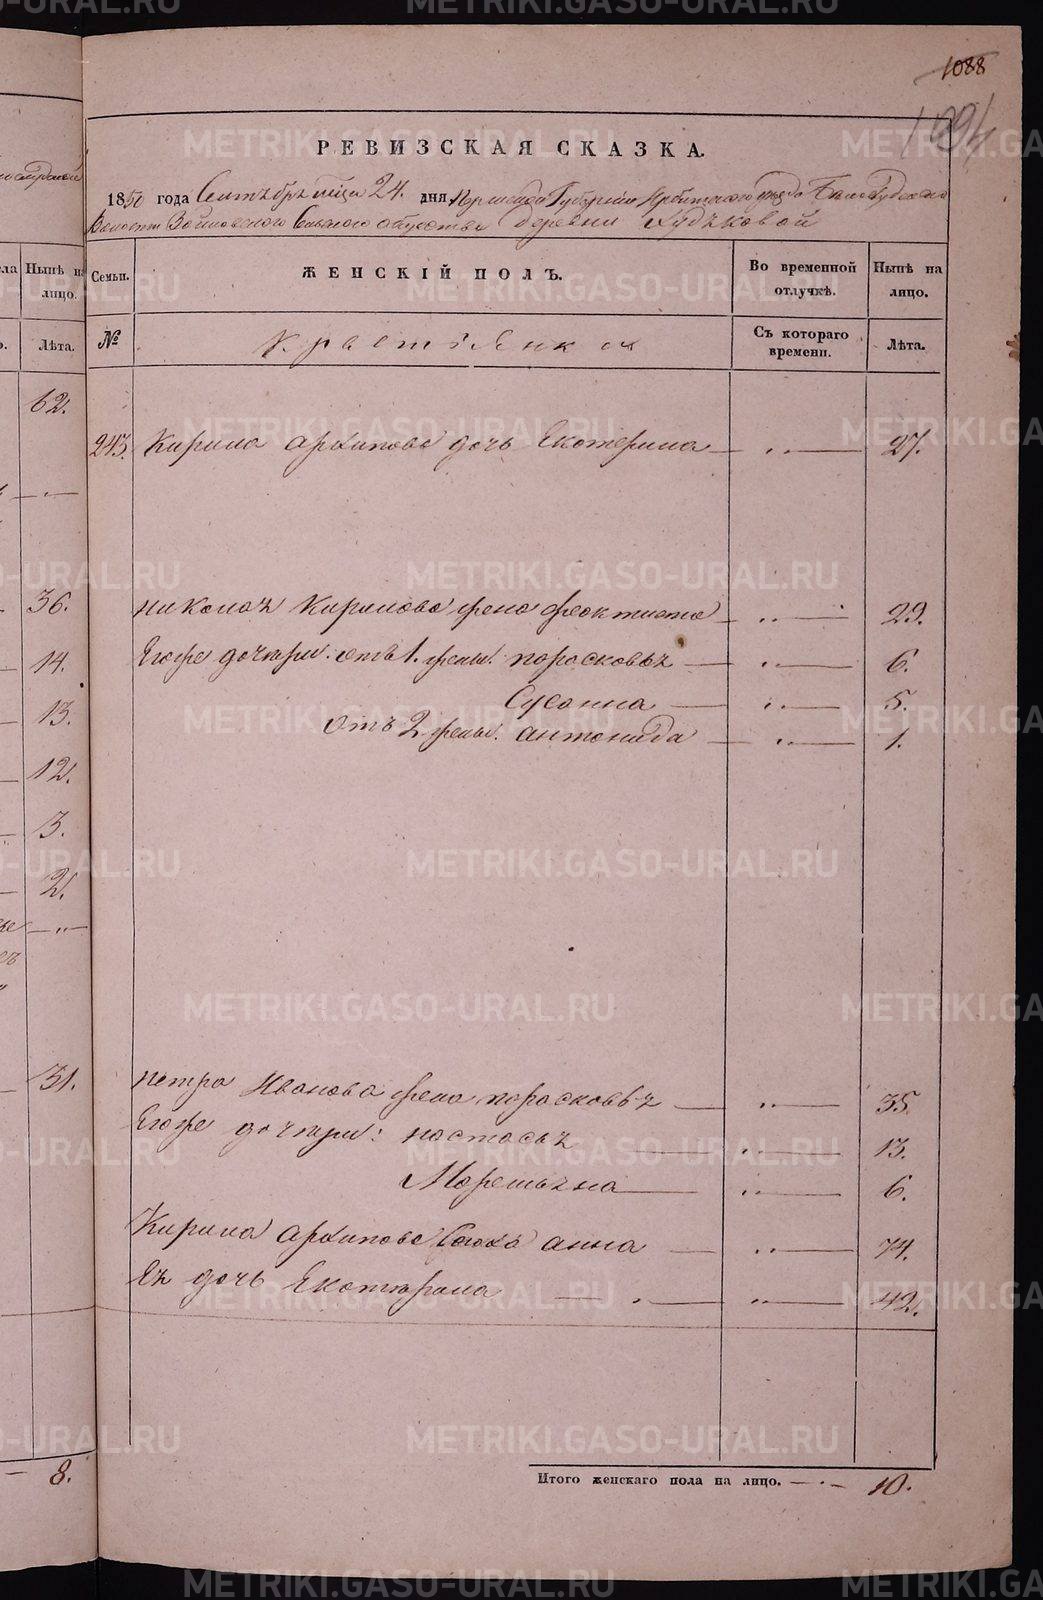 1088
1994
РЕВИЗСКАЯ СКАЗКА.
1850 года Сентября месяца 24 дня Пермской Губернии Ирбитского уезда
Волости Зайковского Сельского общества деревни Худяковой
Семьи. ЖЕНСКІЙ ПОЛЪ. Во временной отлучкѣ. Нынѣ на лицо.
№ крестьянки Съ котораго времени. Лѣта.
243. Кирила Архипова дочь Екотерина 27.
николая Кирилова жена феоктиста 29.
Егоже дочери: отъ 1. жены: порасковья 6.
Сусанна 5.
отъ 2 жены. антонида 1.
петра Иванова жена порасковья 35.
Егоже дочери: настасья 13.
Маремьяна 6.
Кирила Архипова сноха анна 74.
Ея дочь Екотерина 42.
Итого женскаго пола на лицо. 10.
Нынѣ на лицо.
Лѣта.
62.
36.
14.
13.
12.
3.
2.
31.
8.
METRIKI.GASO-URAL.RU